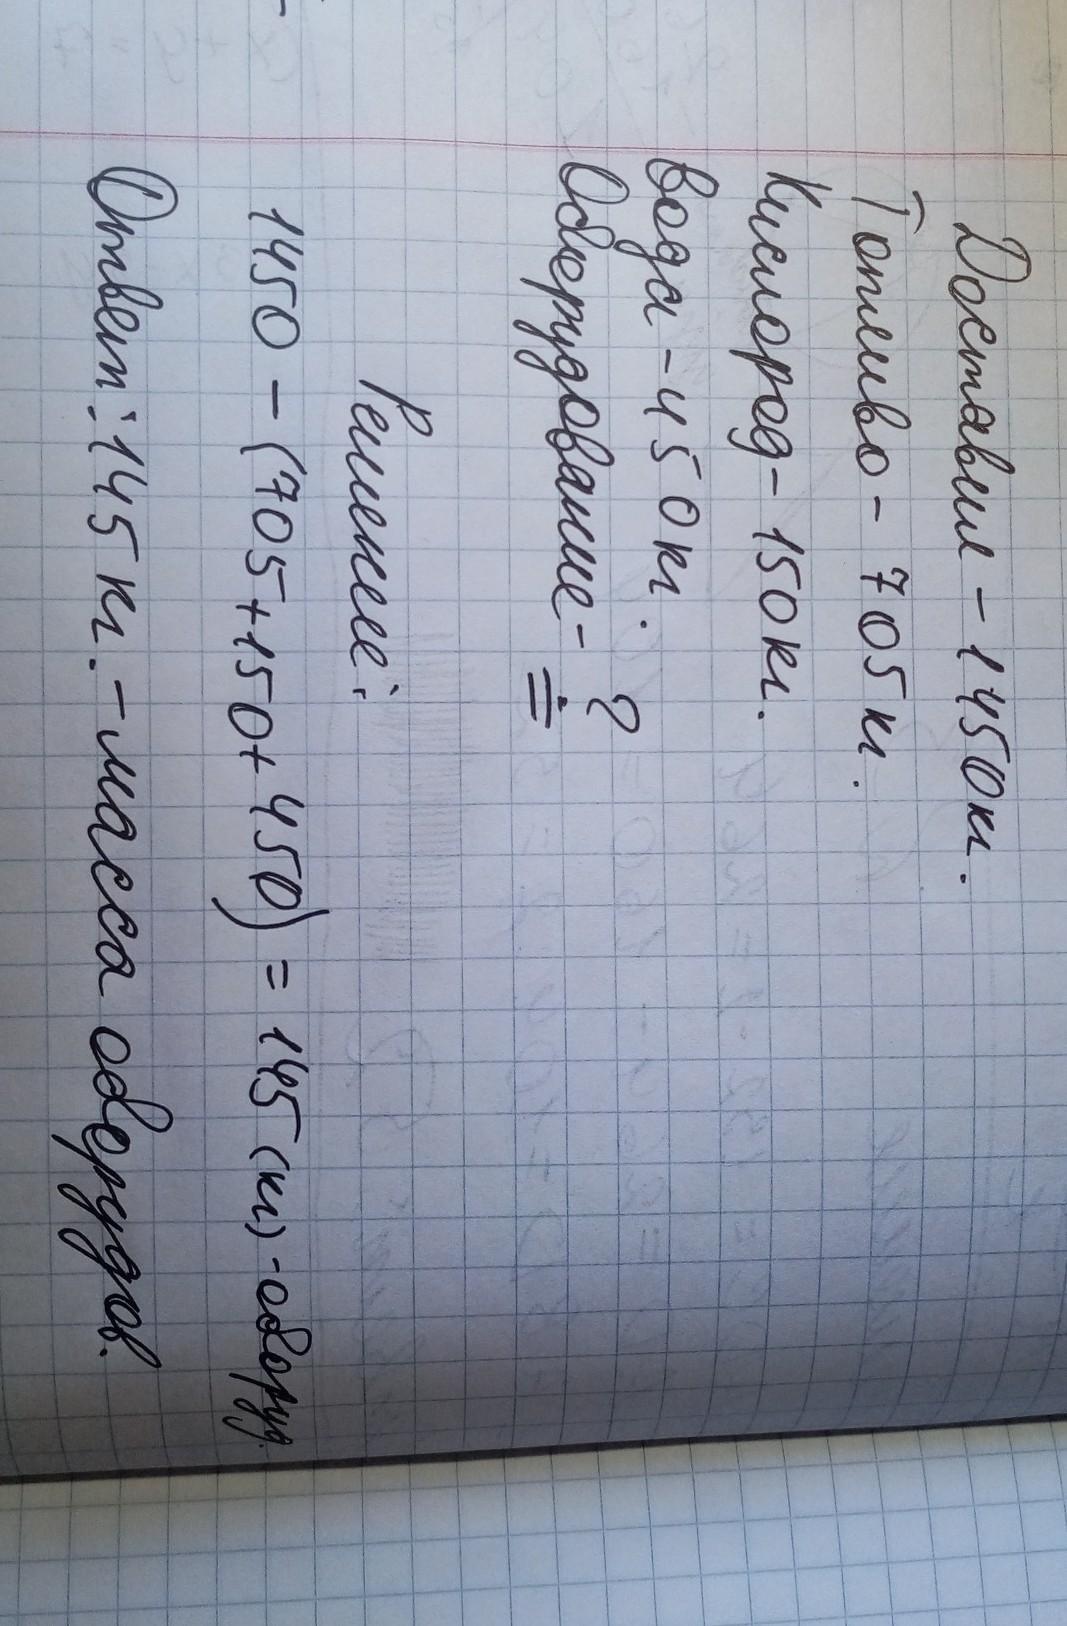 Доставил - 1450кг.
Топливо - 705кг.
Кислород - 150кг.
Вода - 450кг.
Оберудование - ?
Решение:
1450 - (705+150+450) = 145 (кг) - оборуд.
Ответ: 145 кг. - масса оборудов.